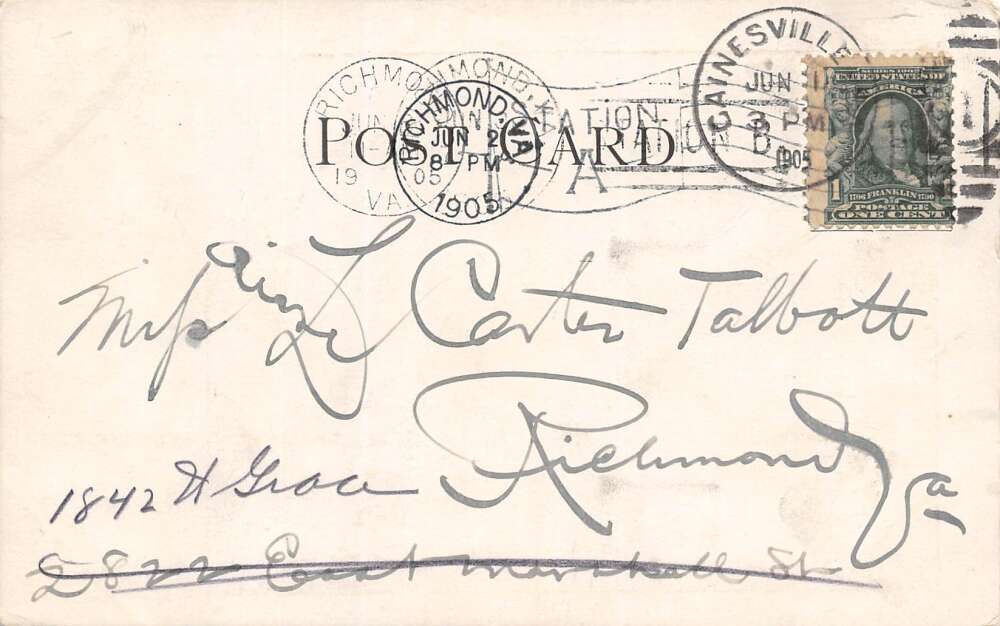 RICHMOND, VA.
JUN 2
8 - PM
1905
RICHMOND
JUN
19 05
VA
STATION
A
GAINESVILLE
JUN 1
3 PM
D
1905
SERIES 1902
UNITED STATES OF
AMERICA
1
1706 FRANKLIN 1790
POSTAGE
ONE CENT
POST CARD
Miss L Carter Talbott
Richmond
Va
1842 W Grace
2822 East Marshall St